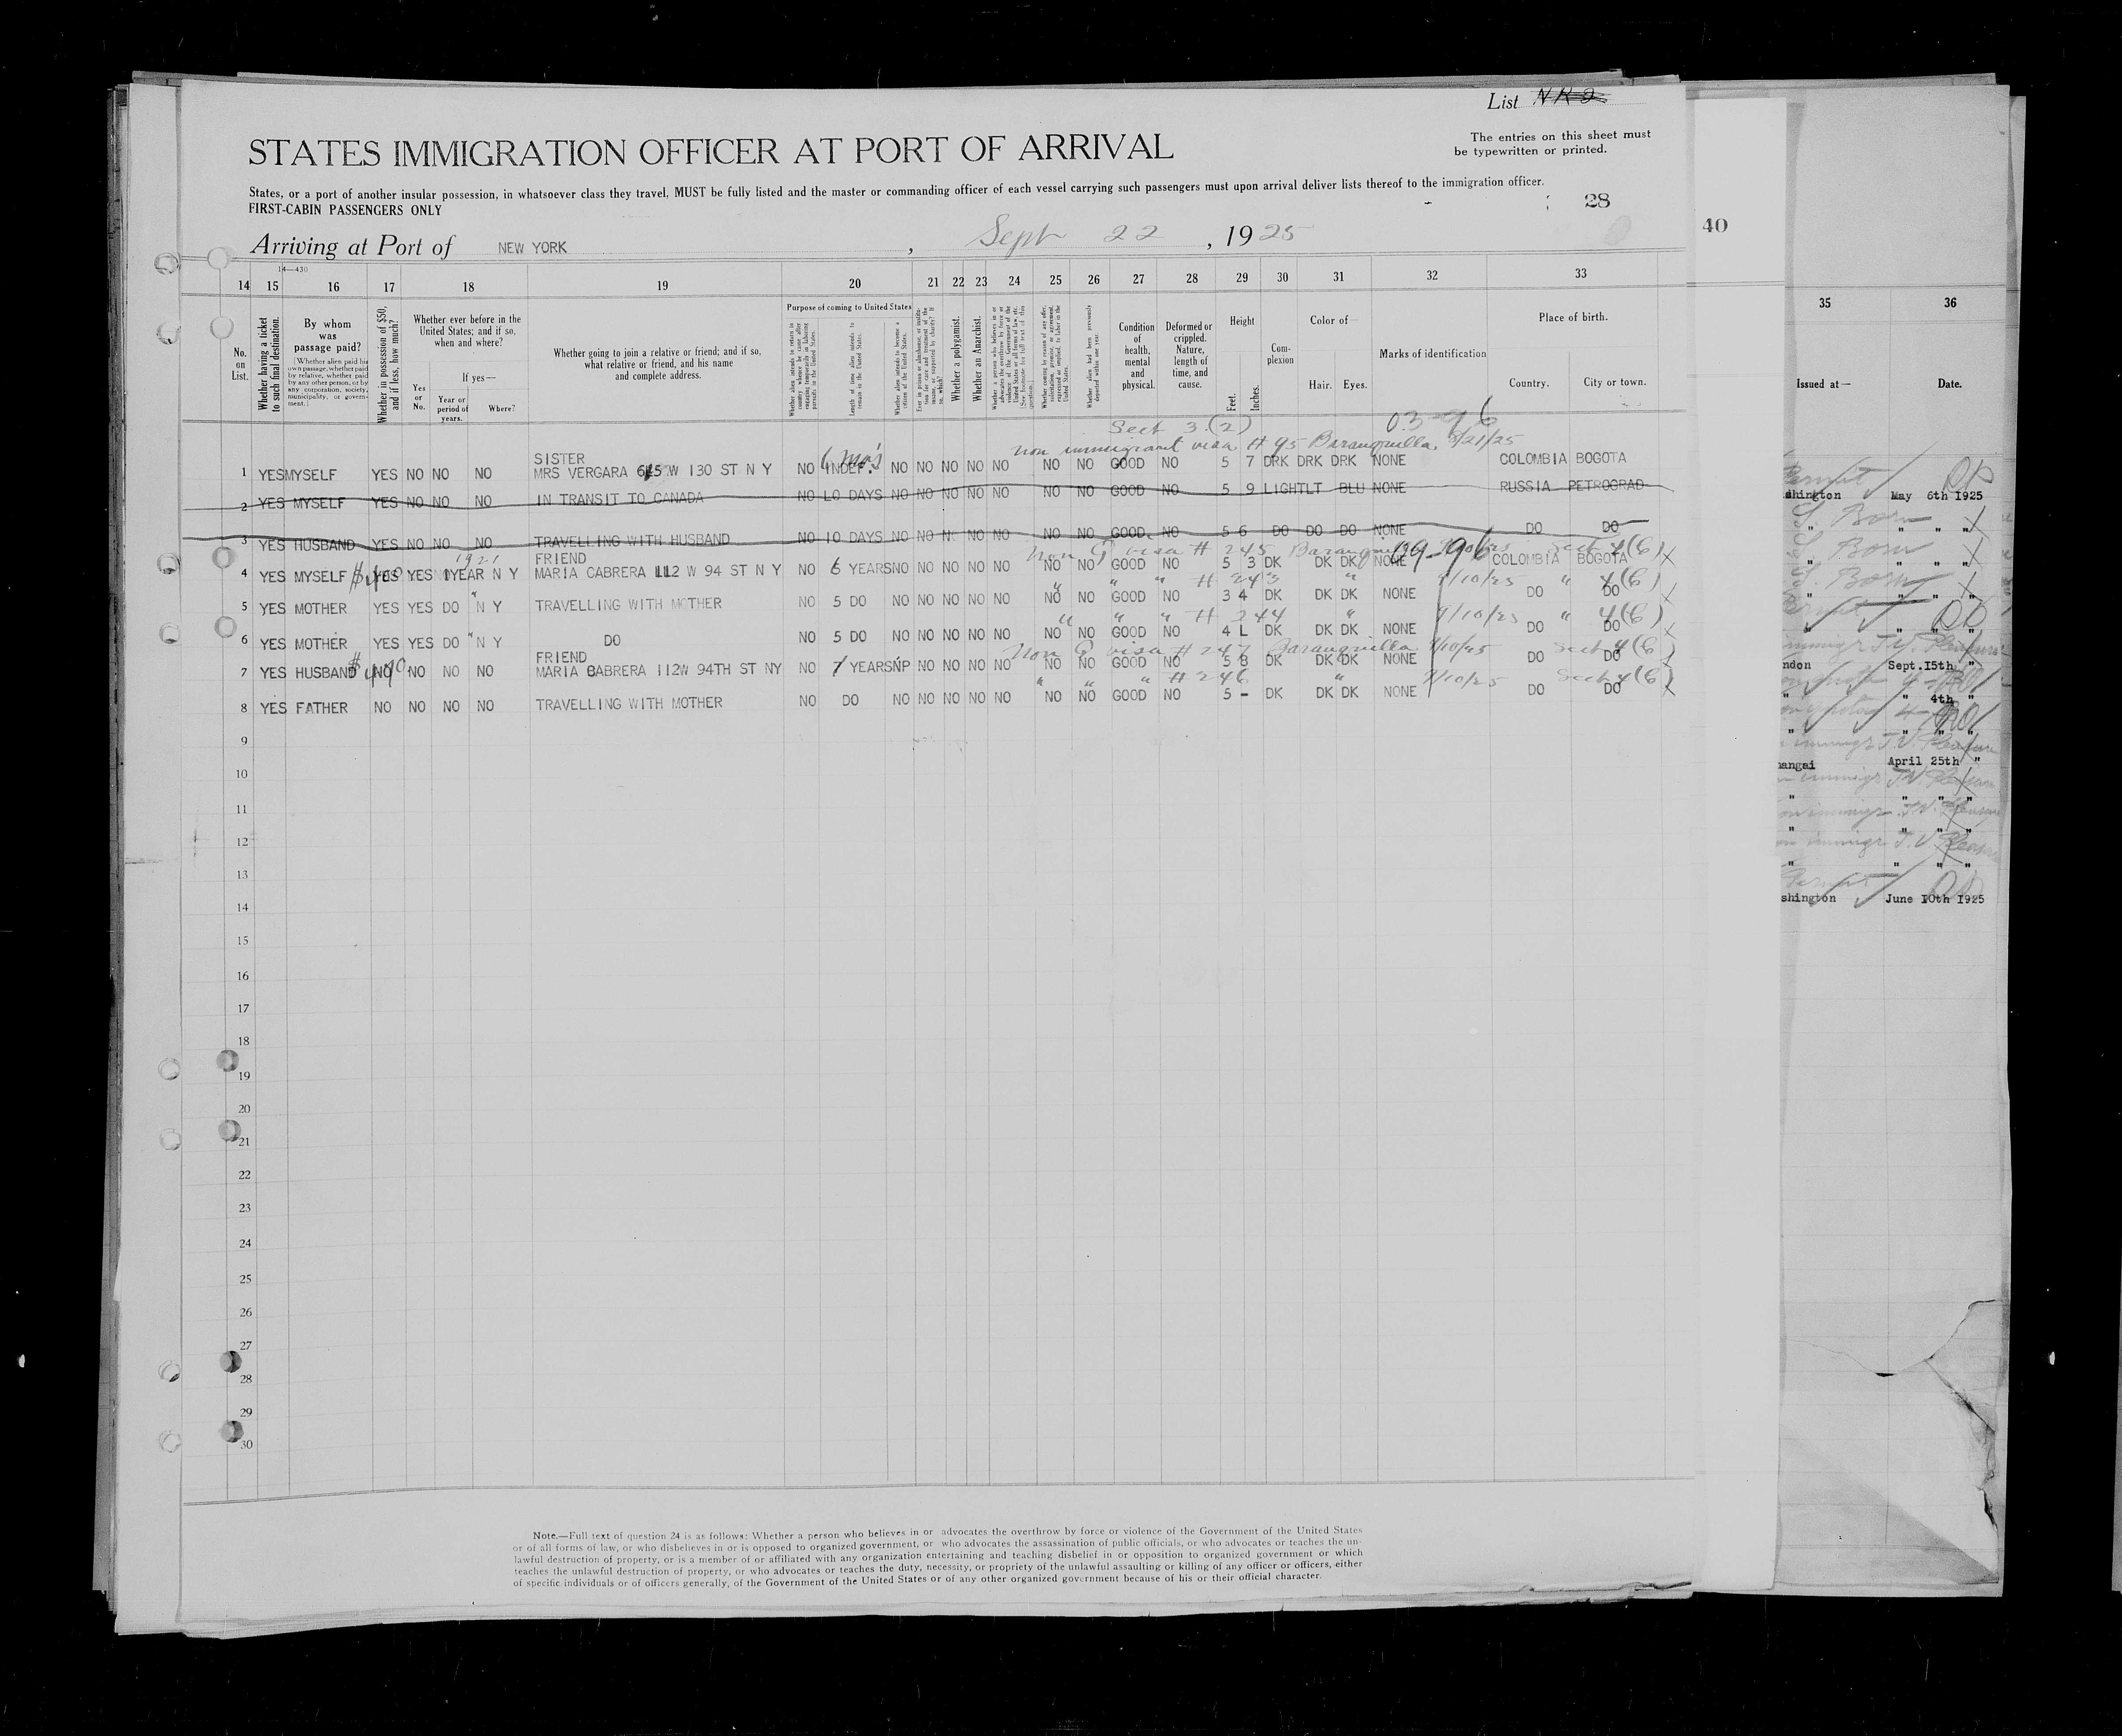 List NR 2
The entries on this sheet must
be typewritten or printed.
STATES IMMIGRATION OFFICER AT PORT OF ARRIVAL
States, or a port of another insular possession, in whatsoever class they travel, MUST be fully listed and the master or commanding officer of each vessel carrying such passengers must upon arrival deliver lists thereof to the immigration officer.
FIRST-CABIN PASSENGERS ONLY
28
40
Arriving at Port of NEW YORK, Sept 22, 1925
14—430
14 15 16 17 18 19 20 21 22 23 24 25 26 27 28 29 30 31 32 33
35 36
No. on List.
Whether having a ticket to such final destination.
By whom was passage paid?
(Whether alien paid his own passage, whether paid by relative, whether paid by any other person, or by any corporation, society, municipality, or government.)
Whether in possession of $50, and if less, how much?
Whether ever before in the United States; and if so, when and where?
Yes or No.
If yes—
Year or period of years.
Where?
Whether going to join a relative or friend; and if so, what relative or friend, and his name and complete address.
Purpose of coming to United States
Length of time alien intends to remain in the United States.
Whether alien intends to become a citizen of the United States.
Whether a polygamist.
Whether an Anarchist.
Whether alien had been previously deported within one year.
Condition of health, mental and physical.
Deformed or crippled. Nature, length of time, and cause.
Height
Feet. Inches.
Complexion
Color of—
Hair. Eyes.
Marks of identification
Place of birth.
Country. City or town.
Issued at— Date.
03-96
Sect 3.(2)
non immigrant visa # 95 Baranquilla 8/21/25
SISTER 6 mo's
1 YES MYSELF YES NO NO NO MRS VERGARA 615 W 130 ST N Y NO INDEF. NO NO NO NO NO NO NO GOOD NO 5 7 DRK DRK DRK NONE COLOMBIA BOGOTA
2 YES MYSELF YES NO NO NO IN TRANSIT TO CANADA NO 10 DAYS NO NO NO NO NO NO NO GOOD NO 5 9 LIGHT LT BLU NONE RUSSIA PETROGRAD
3 YES HUSBAND YES NO NO NO TRAVELLING WITH HUSBAND NO 10 DAYS NO NO NO NO NO NO NO GOOD NO 5 6 DO DO DO NONE DO DO
1921 FRIEND Non Q visa # 245 Sect 4(6)
4 YES MYSELF YES YES 1YEAR N Y MARIA CABRERA 112 W 94 ST N Y NO 6 YEARS NO NO NO NO NO NO NO GOOD NO 5 3 DK DK DK NONE COLOMBIA BOGOTA X
" " " # 243 " 9/10/25 " 4(6)
5 YES MOTHER YES YES DO " N Y TRAVELLING WITH MOTHER NO 5 DO NO NO NO NO NO NO NO GOOD NO 3 4 DK DK DK NONE DO DO X
" " " # 244 " 9/10/25 " 4(6)
6 YES MOTHER YES YES DO " N Y DO NO 5 DO NO NO NO NO NO NO NO GOOD NO 4 L DK DK DK NONE DO DO X
FRIEND Non Q visa # 247 Baranquilla 9/10/25 Sect 4(6)
7 YES HUSBAND NO NO NO NO MARIA CABRERA 112W 94TH ST NY NO 7 YEARS NO NO NO NO NO NO NO GOOD NO 5 8 DK DK DK NONE DO DO X
" " " # 246 " 9/10/25 Sect 4(6)
8 YES FATHER NO NO NO NO TRAVELLING WITH MOTHER NO DO NO NO NO NO NO NO NO GOOD NO 5 - DK DK DK NONE DO DO X
9
10
11
12
13
14
15
16
17
18
19
20
21
22
23
24
25
26
27
28
29
30
shington May 6th 1925
Born
Born
Born
ndon Sept.15th "
" 4th
angai April 25th "
shington June 10th 1925
Note.—Full text of question 24 is as follows: Whether a person who believes in or advocates the overthrow by force or violence of the Government of the United States
or of all forms of law, or who disbelieves in or is opposed to organized government, or who advocates the assassination of public officials, or who advocates or teaches the un-
lawful destruction of property, or is a member of or affiliated with any organization entertaining and teaching disbelief in or opposition to organized government or which
teaches the unlawful destruction of property, or who advocates or teaches the duty, necessity, or propriety of the unlawful assaulting or killing of any officer or officers, either
of specific individuals or of officers generally, of the Government of the United States or of any other organized government because of his or their official character.